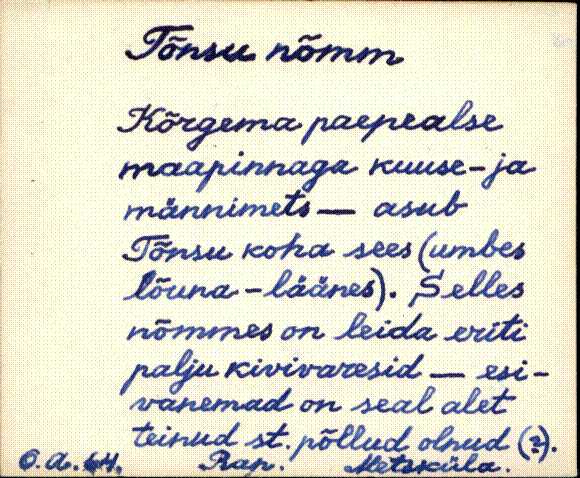 Tõnsu nõmm
Kõrgema paepealse
maapinnaga kuuse-ja
männimets — asub
Tõnsu koha sees (umbes
lõuna-läänes). Selles
nõmmes on leida eriti
palju kivivaresid — esi-
vanemad on seal alet
teinud st. põllud olnud (?).
O.A. 64. Rap. Metsküla.